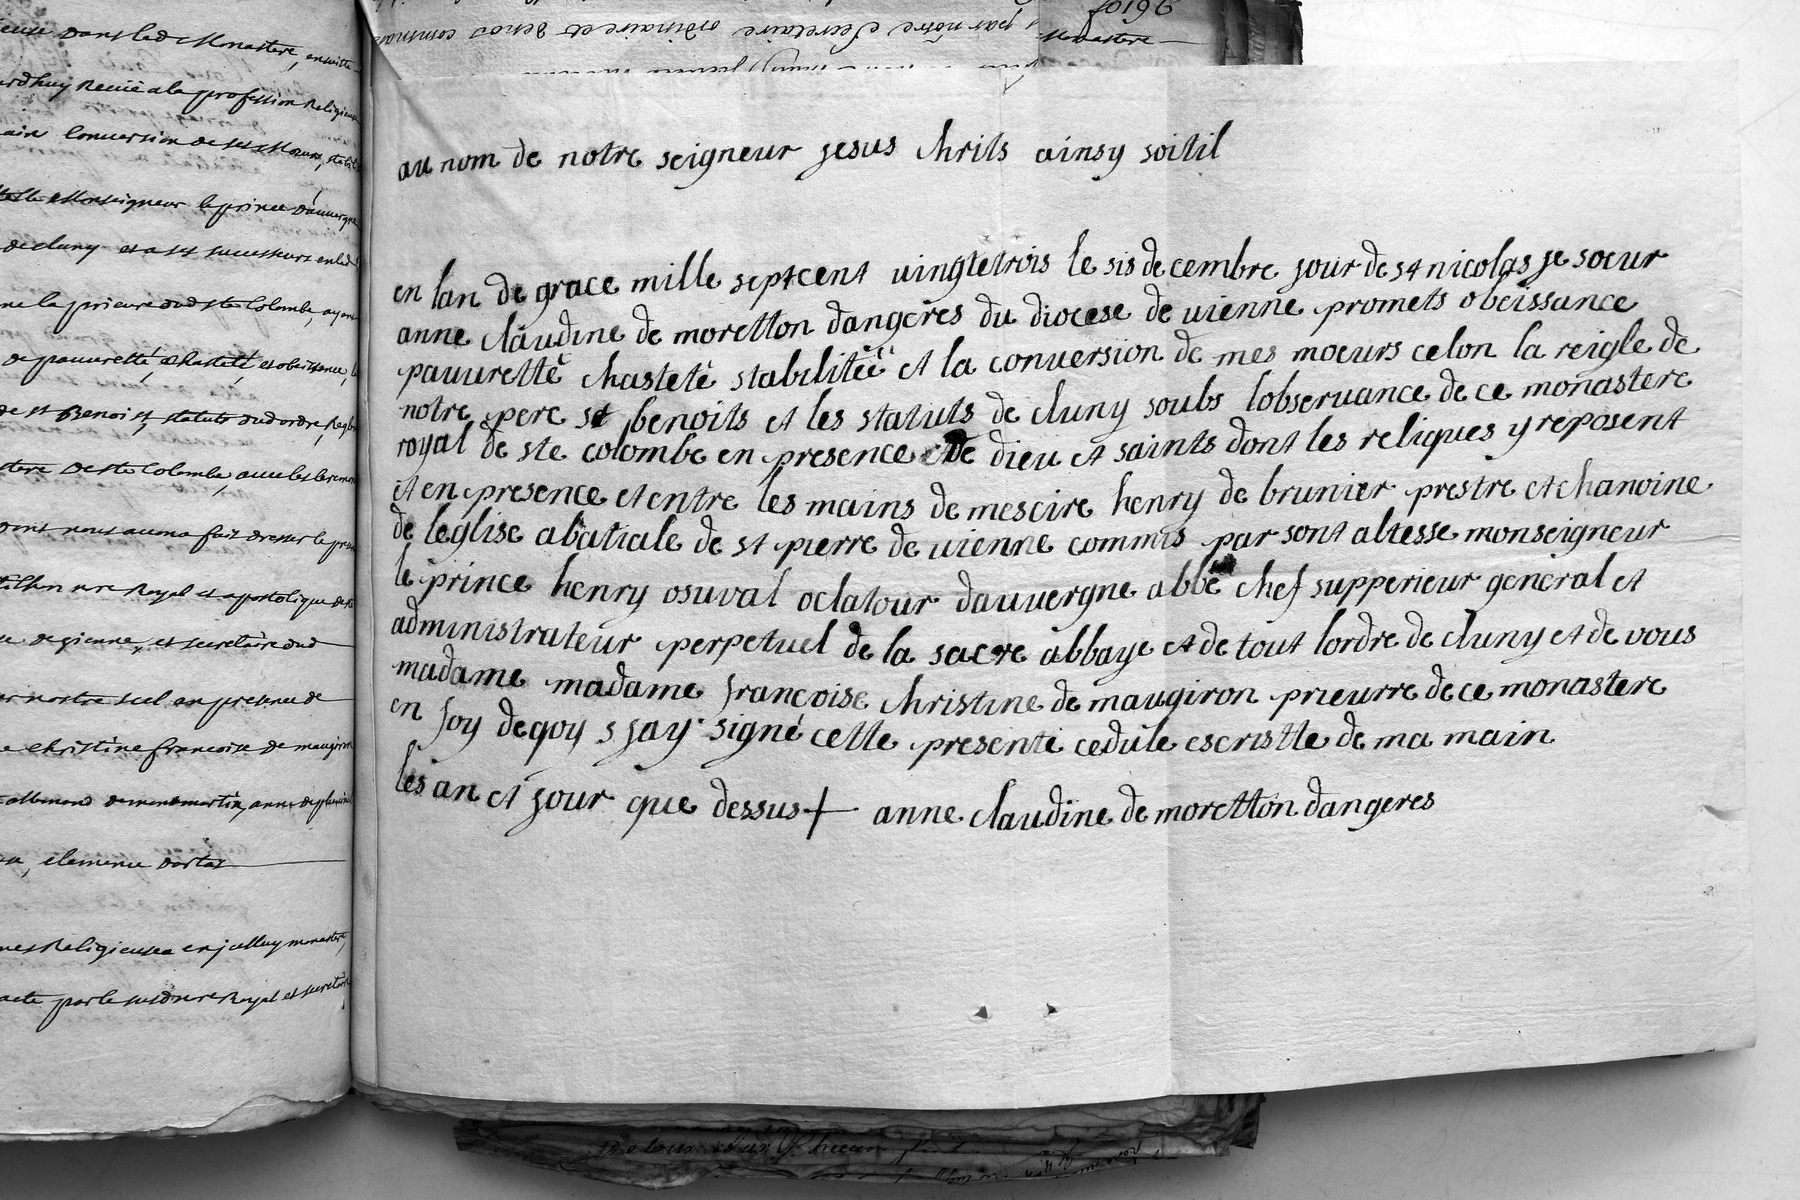 dans led Monastere, ensuitte
Receüe a la profession Religieuse
Conversion de ses Mœurs,
Monseigneur le prince dauvergne
de cluny et a ses successeurs
la prieure dud ste Colombe, ayant
de pauvretté, chasteté, et obeissance,
de st Benoist, statuts dud ordre,
de ste Colombe, avec les
nous avons fait dresser le
Royal et apostolique
de vienne, et secretaire dud
nostre scel en presence de
christine francoise de maugiron
allemand de montmartin, anne
clemence
Religieuses en jcelluy monastere,
acte par le susd nre Royal et secretaire
par nôtre Secretaire ordinaire et de nos
Monastere
au nom de notre seigneur jesus chrits ainsy soitil
en lan de grace mille septcent vingtetrois le sis de cembre jour de st nicolas je sœur
anne claudine de moretton dangeres du diocese de vienne promets obeissance
pauvretté chasteté stabilitéé et la conversion de mes mœurs celon la reigle de
notre pere st benoits et les statuts de cluny soubs lobservance de ce monastere
royal de ste colombe en presence de dieu et saints dont les reliques y reposent
et en presence et entre les mains de mescire henry de brunier prestre et chanoine
de leglise abatiale de st pierre de vienne commis par sont altesse monseigneur
le prince henry osuval oclatour dauvergne abbé chef supperieur general et
administrateur perpetuel de la sacre abbaye et de tout lordre de cluny et de vous
madame madame françoise christine de maugiron prieurre de ce monastere
en foy de qoy s jay signé cette presente cedule escristte de ma main
les an et jour que dessus + anne claudine de moretton dangeres